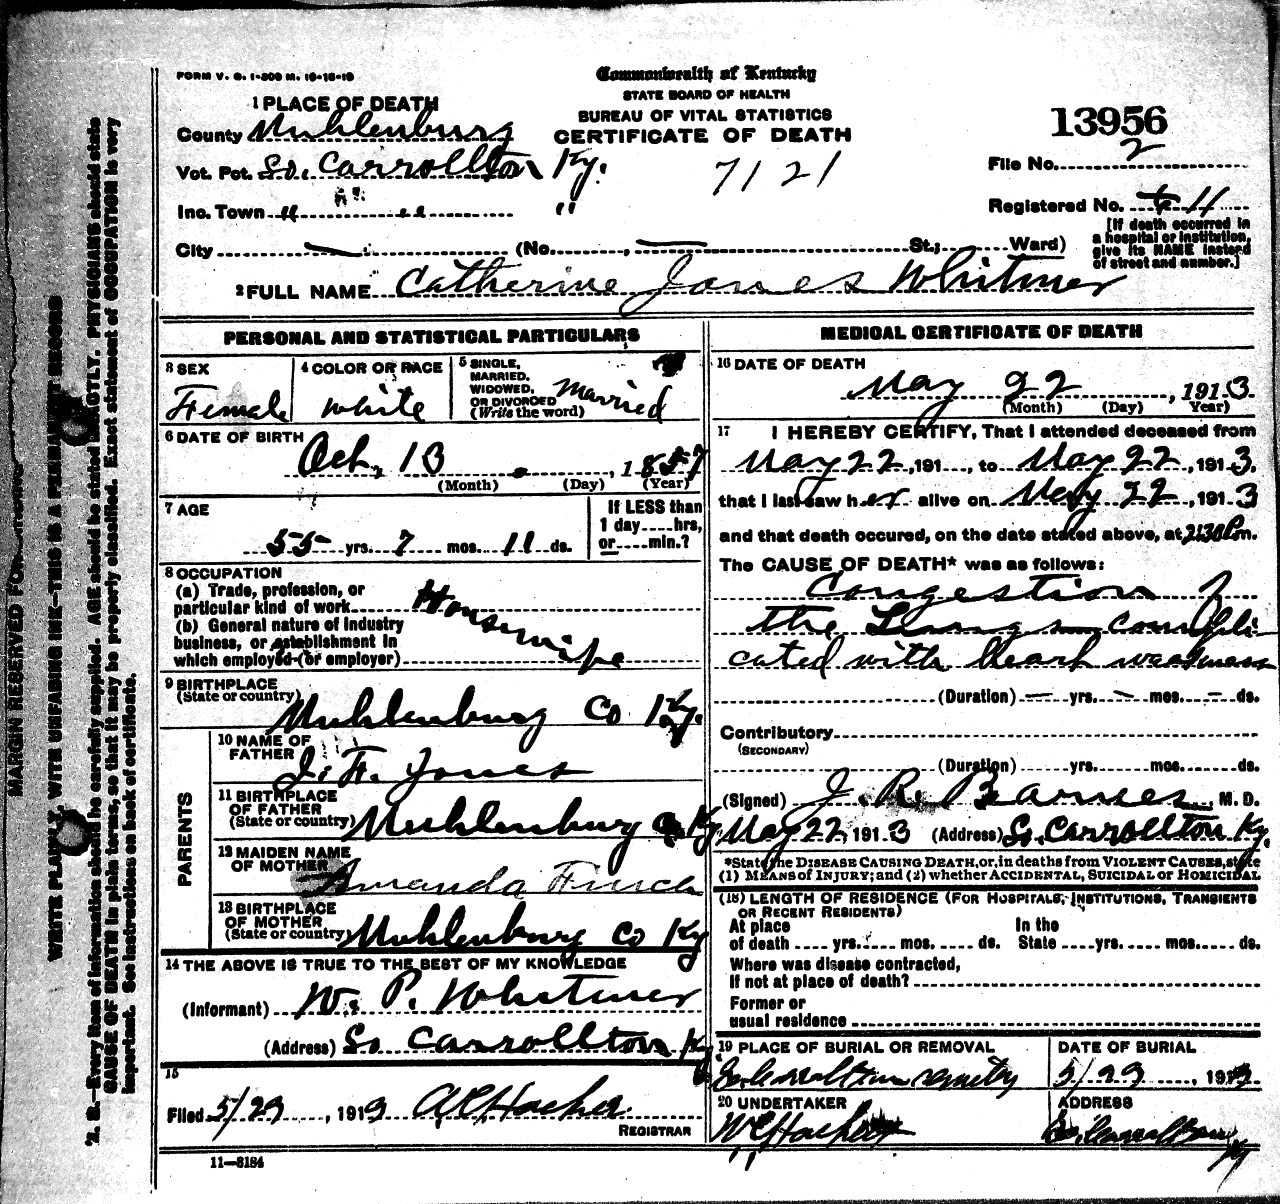 FORM V. S. 1-300 M. 10-18-10
Commonwealth of Kentucky
STATE BOARD OF HEALTH
BUREAU OF VITAL STATISTICS
CERTIFICATE OF DEATH
13956
7121
1 PLACE OF DEATH
County Muhlenburg
Vot. Pct. So. Carrollton Ky.
Inc. Town " " "
City (No. St.; Ward)
File No. 2
Registered No. 11
[If death occurred in
a hospital or institution,
give its NAME instead
of street and number.]
2 FULL NAME Catherine Jones Whitmer
PERSONAL AND STATISTICAL PARTICULARS
3 SEX
Female
4 COLOR OR RACE
White
5 SINGLE,
MARRIED,
WIDOWED,
OR DIVORCED
(Write the word)
Married
6 DATE OF BIRTH
Oct. 13, 1857
(Month) (Day) (Year)
7 AGE
55 yrs. 7 mos. 11 ds.
If LESS than
1 day hrs,
or min.?
8 OCCUPATION
(a) Trade, profession, or
particular kind of work
(b) General nature of industry
business, or establishment in
which employed (or employer)
Housewife
9 BIRTHPLACE
(State or country)
Muhlenburg Co Ky.
PARENTS
10 NAME OF
FATHER
J. F. Jones
11 BIRTHPLACE
OF FATHER
(State or country)
Muhlenburg Co Ky
12 MAIDEN NAME
OF MOTHER
Amanda
13 BIRTHPLACE
OF MOTHER
(State or country)
Muhlenburg Co Ky
14 THE ABOVE IS TRUE TO THE BEST OF MY KNOWLEDGE
(Informant) W. P. Whitmer
(Address) So Carrollton Ky
15
Filed 5/23, 1913
REGISTRAR
11—8184
MEDICAL CERTIFICATE OF DEATH
16 DATE OF DEATH
May 22, 1913
(Month) (Day) Year)
17 I HEREBY CERTIFY, That I attended deceased from
May 22, 191 , to May 22, 1913,
that I last saw her alive on May 22, 1913
and that death occured, on the date stated above, at 2:30 P.m.
The CAUSE OF DEATH* was as follows:
Congestion of
the Lungs compli
cated with heart weakness
(Duration) — yrs. — mos. — ds.
Contributory
(SECONDARY)
(Duration) yrs. mos. ds.
(Signed) J. R. Barnes, M. D.
May 22, 1913 (Address) So. Carrollton Ky.
*State the DISEASE CAUSING DEATH, or, in deaths from VIOLENT CAUSES, state
(1) MEANS of INJURY; and (2) whether ACCIDENTAL, SUICIDAL or HOMICIDAL
(18) LENGTH OF RESIDENCE (FOR HOSPITALS, INSTITUTIONS, TRANSIENTS
OR RECENT RESIDENTS)
At place
of death yrs. mos. ds.
In the
State yrs. mos. ds.
Where was disease contracted,
If not at place of death?
Former or
usual residence
19 PLACE OF BURIAL OR REMOVAL
So. Carrollton
DATE OF BURIAL
5/23, 1913
20 UNDERTAKER
ADDRESS
So. Carrollton
Ky
MARGIN RESERVED FOR
WRITE PLAINLY, WITH UNFADING INK—THIS IS A PERMANENT RECORD
N. B.—Every item of information should be carefully supplied. AGE should be stated EXACTLY. PHYSICIANS should state
CAUSE OF DEATH in plain terms, so that it may be properly classified. Exact statement of OCCUPATION is very
important. See instructions on back of certificate.